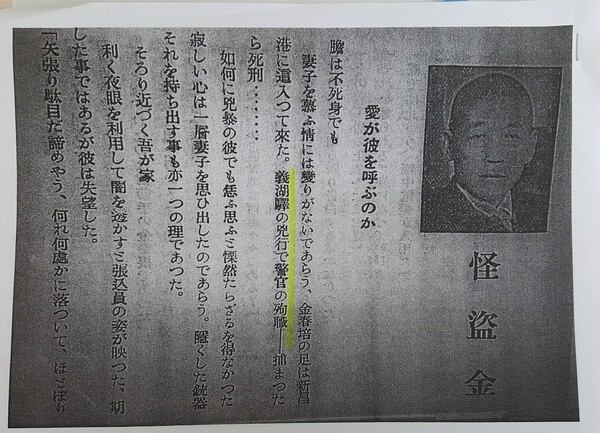 怪盗金
愛が彼を呼ぶのか
膽は不死身でも
妻子を慕ふ情には變りがないであらう、金春培の足は新昌
港に這入つて來た。義湖驛の兇行で警官の殉職――捕まつた
ら死刑………
如何に兇暴の彼でも恁ふ思ふと慄然たらざるを得なかつた
寂しい心は一層妻子を思ひ出したのであらう。隱くした銃器
それを持ち出す事も亦一つの理であつた。
そろり近づく吾が家
利く夜眼を利用して闇を透かすと張込員の姿が映つた、期
した事ではあるが彼は失望した。
「矢張り駄目だ諦めやう、何れ何處かに落ついて、ほとぼり